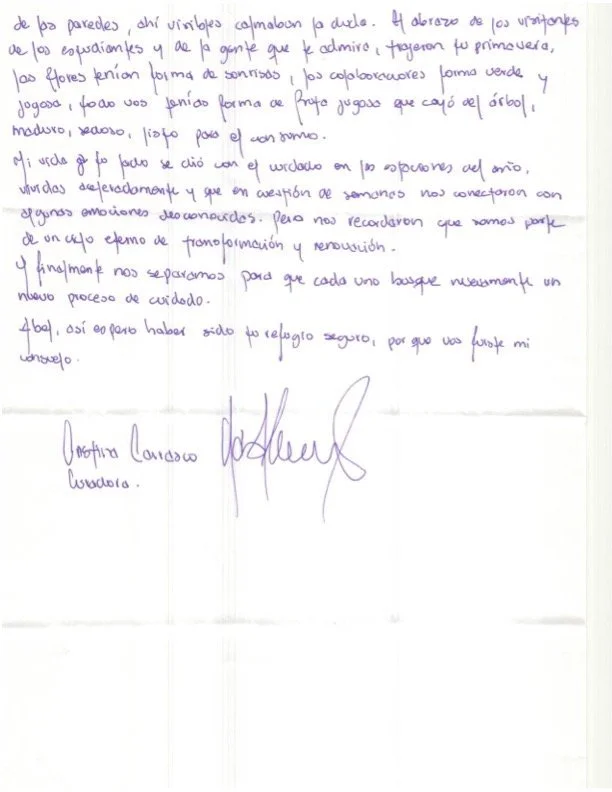 de las paredes, ahí visibles calmaban la duda. El abrazo de los visitantes
de los estudiantes y de la gente que te admira, trajeron tu primavera,
las flores tenían forma de sonrisas, los colaboradores forma verde y
jugosa, todo vos tenías forma de fruta jugosa que cayó del árbol,
maduro, sedoso, listo para el consumo.
Mi vida a tu lado se dió con el cuidado en las estaciones del año,
vividas aceleradamente y que en cuestión de semanas nos conectaron con
algunas emociones desconocidas. Pero nos recordaron que somos parte
de un ciclo eterno de transformación y renovación.
Y finalmente nos separamos para que cada uno busque nuevamente un
nuevo proceso de cuidado.
Abel, así espero haber sido tu refugio seguro, por que vos fuiste mi
consuelo.
Carrasco
Curadora.